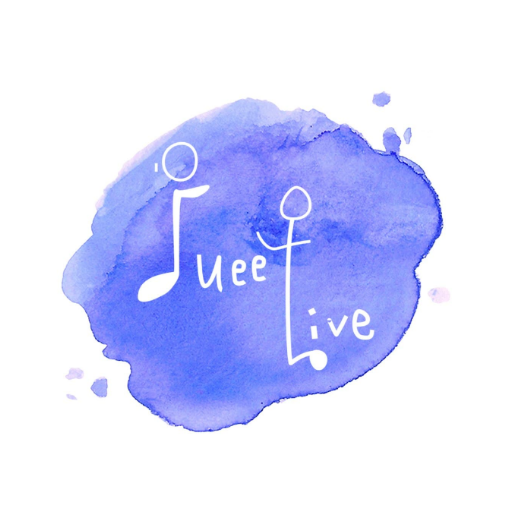 Juee
Live